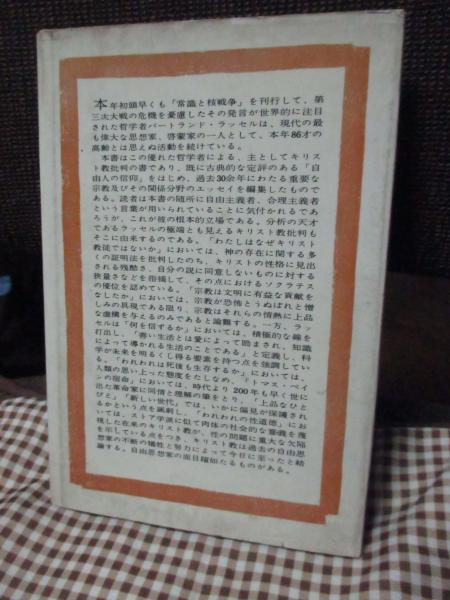 本年初頭早くも「常識と核戦争」を刊行して、第
三次大戦の危機を憂慮したその発言が世界的に注目
された哲学者バートランド・ラッセルは、現代の最
も偉大な思想家、啓蒙家の一人として、本年86才の
高齢とは思えぬ活動を続けている。
本書はこの優れた哲学者による、主としてキリス
ト教批判の書であり、既に古典的な定評のある「自
由人の信仰」をはじめ、過去30余年にわたる重要な
宗教及びその関係分野のエッセイを編集したもので
ある。読者は本書の随所に自由主義者、合理主義者
という言葉が用いられていることに気付かれるであ
ろうが、これが彼の根本的立場である。分析の天才
であるラッセルの極端とも見えるキリスト教批判も
そこに由来するのである。「わたしはなぜキリスト
教徒ではないか」においては、神の存在に関する多
くの証明法を批判したのち、キリストの性格に見出
される残酷さ、自分の説に同意しないものに対する
狭量さなどを指摘して、その点におけるソクラテス
の優位を認めている。「宗教は文明に有益な貢献を
なしたか」においては、宗教が恐怖とうぬぼれと憎
しみの具現である限り、宗教はそれらの情熱に上品
な虚構を与えるのみであると論難する。一方、ラッ
セルは「何を信ずるか」においては、積極的な線を
打出し、「善い生活とは愛によって励まされ、知識
によって導かれる生活のことである」と定義し、科
学が未来を明るくし得る要素を持つ点を強調してい
る。「われわれは死後も生存するか」においては、
人類の思い上った態度をたしなめ、「トマス・ペイ
ンの宿命」においては、時代より200年も早く世に
出た革命家に同情と理解の筆をとり、「上品なひと
びと」「新しい世代」では、いかに偏見が保護され
るかという点を諷刺し、「われわれの性道徳」にお
いては、ストア学派に似て肉体の社会的な意義を蔑
視した在来のキリスト教が、性の問題に重大な欠陥
を示している点をつき、キリスト教は過去の自由思
想家の不断の犠牲と努力によって今日に至ったと結
論する。自由思想家の面目躍如たるものがある。